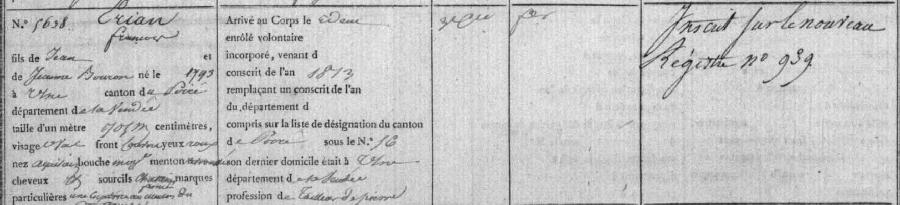 N.° 5638 Crian
françois
fils de Jean et
de Jeanne Bouron né le 1793
à canton du Poiré
département de la Vendée
taille d'un mètre 705 m centimètres,
visage oval front yeux roux
nez aquilain bouche moy.e menton rond
cheveux sourcils chatain marques
particulières une cicatrice au menton du
Arrivé au Corps le idem
enrôlé volontaire
incorporé, venant d
conscrit de l'an 1813
remplaçant un conscrit de l'an
du département d
compris sur la liste de désignation du canton
de Poiré sous le N.° 16
son dernier domicile était à
département de la Vendée
profession de Tailleur de pierre
3e Cie
fer
Inscrit sur le nouveau
Régistre n° 939